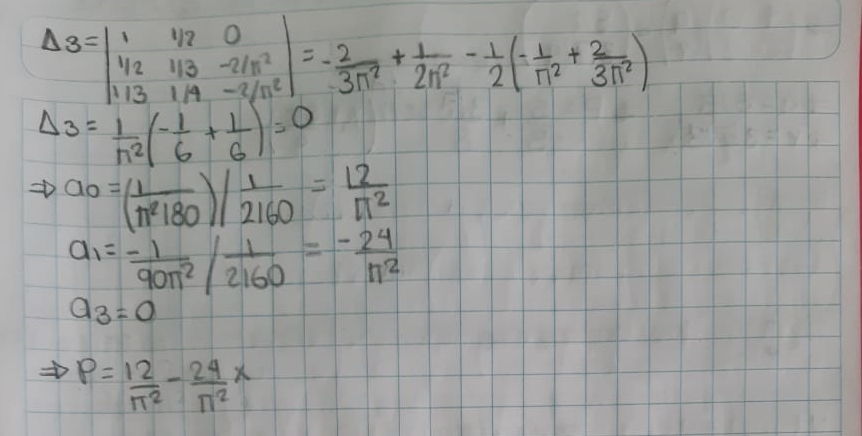 Δ3 = | 1 1/2 0 | = -2/3π² + 1/2π² - 1/2(-1/π² + 2/3π²)
| 1/2 1/3 -2/π² |
| 1/3 1/4 -2/π² |
Δ3 = 1/π² (-1/6 + 1/6) = 0
⇒ a0 = (1/π²180) / 1/2160 = 12/π²
a1 = -1/90π² / 1/2160 = -24/π²
a3 = 0
⇒ P = 12/π² - 24/π² x